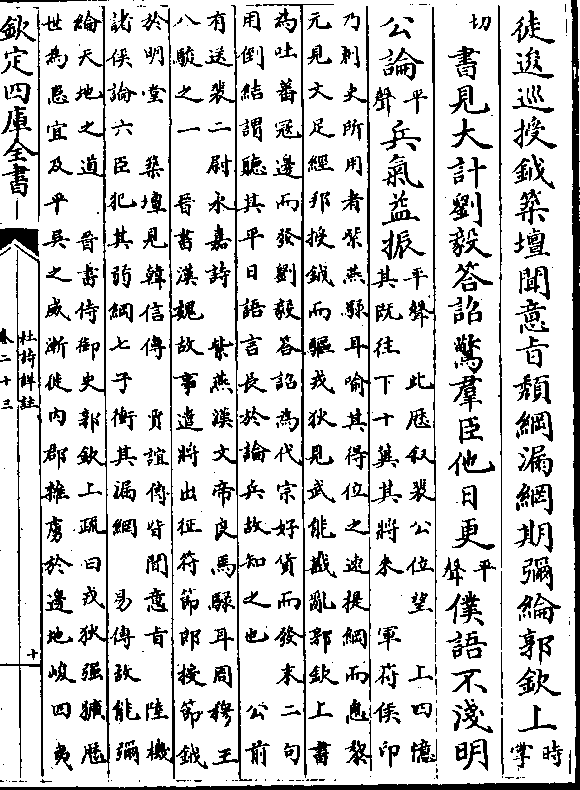 徒逡巡授鉞築壇聞意旨頽綱漏網期彌綸郭欽上時掌
切書見大計劉毅答詔驚羣臣他日更平聲僕語不淺明
公論平聲兵氣益振平聲 此歴叙裴公位望 上四憶
其既往下十冀其將來 軍符侯印
乃刺史所用者紫燕騄耳喻其得位之速提綱而息黎
元見文足經邦授鉞而驅戎狄見武能戡亂郭欽上書
為吐蕃冦邊而發劉毅答詔為代宗好貨而發末二句
用倒結謂聽其平日語言長於論兵故知之也 公前
有送裴二尉永嘉詩 紫燕漢文帝良馬騄耳周穆王
八駿之一 晉書漢魏故事遣將出征符節郎授節鉞
於明堂 築壇見韓信傳 賈誼傳皆聞意旨 陸機
諸侯論六臣犯其弱綱七子衝其漏網 易傳故能彌
綸天地之道 晉書侍御史郭欽上疏曰戎狄强獷歴
世為患宜及平吳之威漸徙內郡雜虜於邊地峻四夷
欽定四庫全書
杜詩詳註
卷二十三
十